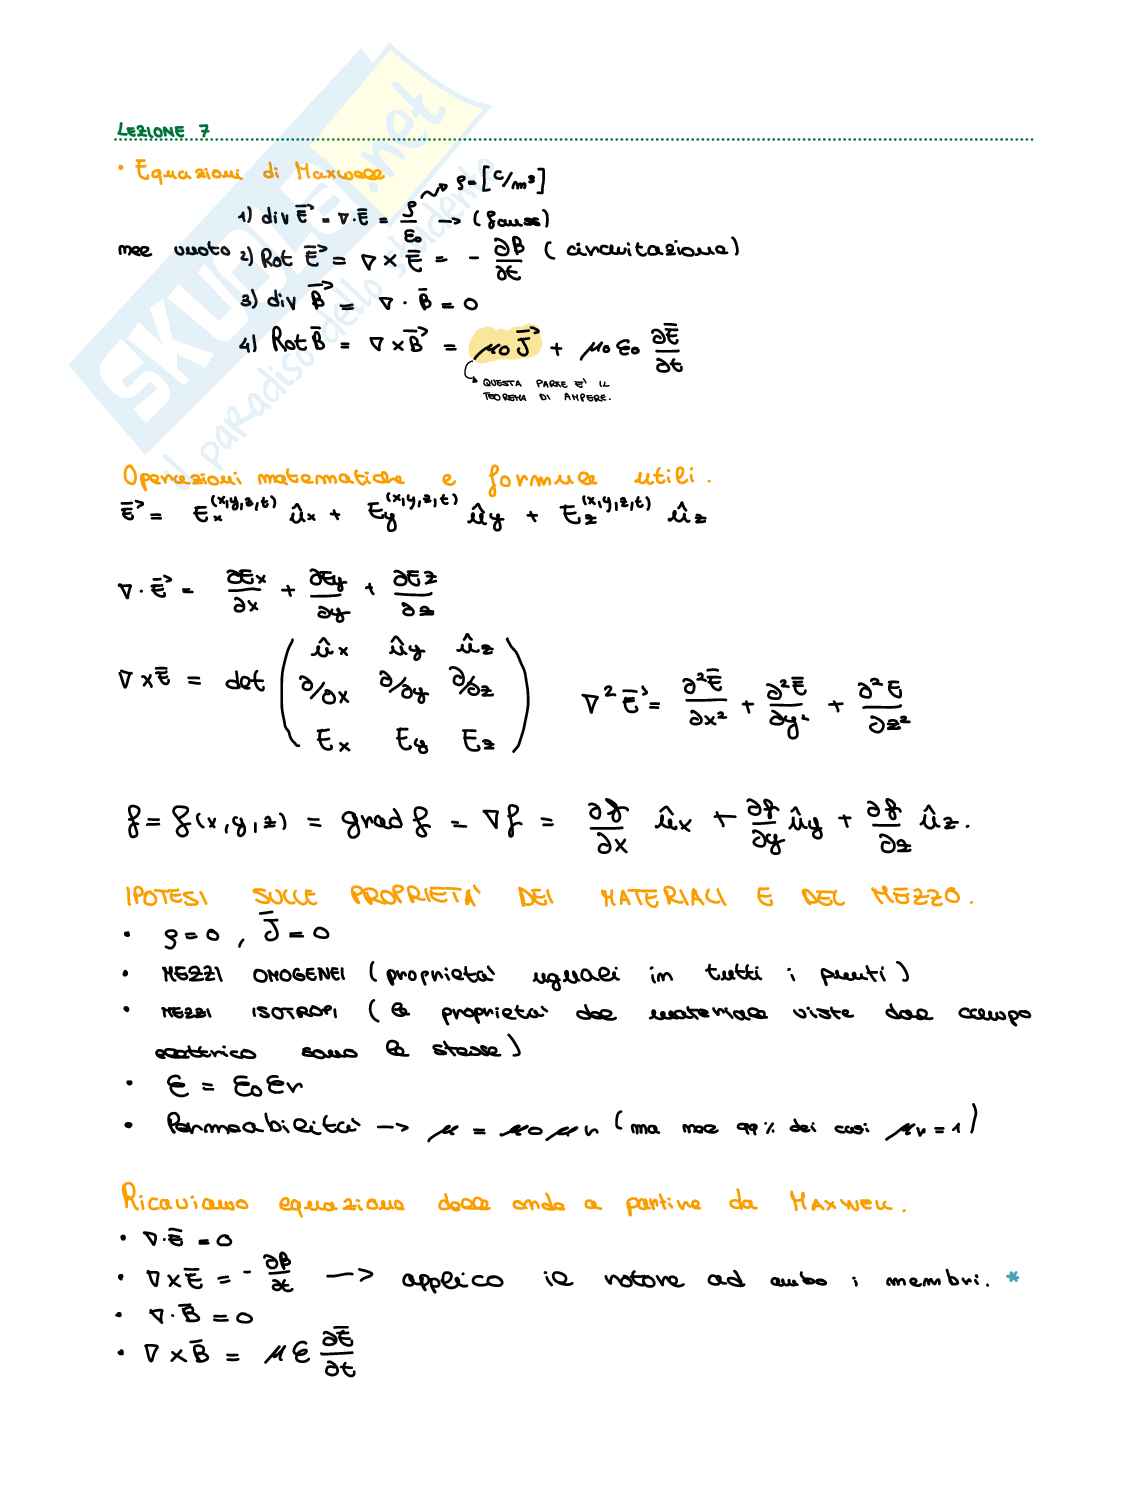 LEZIONE 7
• Equazioni di Maxwell
ρ = [C/m³]
1) div E⃗ = ∇·E̅ = ρ/ε₀ → (gauss)
nel vuoto 2) Rot E⃗ = ∇ × E̅ = - ∂B/∂t (circuitazione)
3) div B⃗ = ∇ · B̅ = 0
4) Rot B̅ = ∇ × B⃗ = μ₀ J⃗ + μ₀ ε₀ ∂E̅/∂t
QUESTA PARTE E' IL
TEOREMA DI AMPERE.
Operazioni matematiche e formule utili.
E⃗ = Ex(x,y,z,t) ûx + Ey(x,y,z,t) ûy + Ez(x,y,z,t) ûz
∇ · E⃗ = ∂Ex/∂x + ∂Ey/∂y + ∂Ez/∂z
∇ × E̅ = det ( ûx ûy ûz
∂/∂x ∂/∂y ∂/∂z
Ex Ey Ez )
∇² E⃗ = ∂²E̅/∂x² + ∂²E̅/∂y² + ∂²E/∂z²
f = f(x,y,z) = grad f = ∇f = ∂f/∂x ûx + ∂f/∂y ûy + ∂f/∂z ûz.
IPOTESI SULLE PROPRIETA' DEI MATERIALI E DEL MEZZO.
• ρ = 0 , J̅ = 0
• MEZZI OMOGENEI (proprieta' uguali in tutti i punti)
• MEZZI ISOTROPI (le proprieta' del materiale viste dal campo
elettrico sono le stesse)
• ε = ε₀ εr
• Permeabilita' → μ = μ₀ μr (ma nel 99% dei casi μr = 1)
Ricaviamo equazione delle onde a partire da MAXWELL.
• ∇·E̅ = 0
• ∇ × E̅ = - ∂B/∂t → applico il rotore ad ambo i membri. *
• ∇ · B̅ = 0
• ∇ × B̅ = μ ε ∂E̅/∂t
SKUOLA.net
il paradiso dello studente